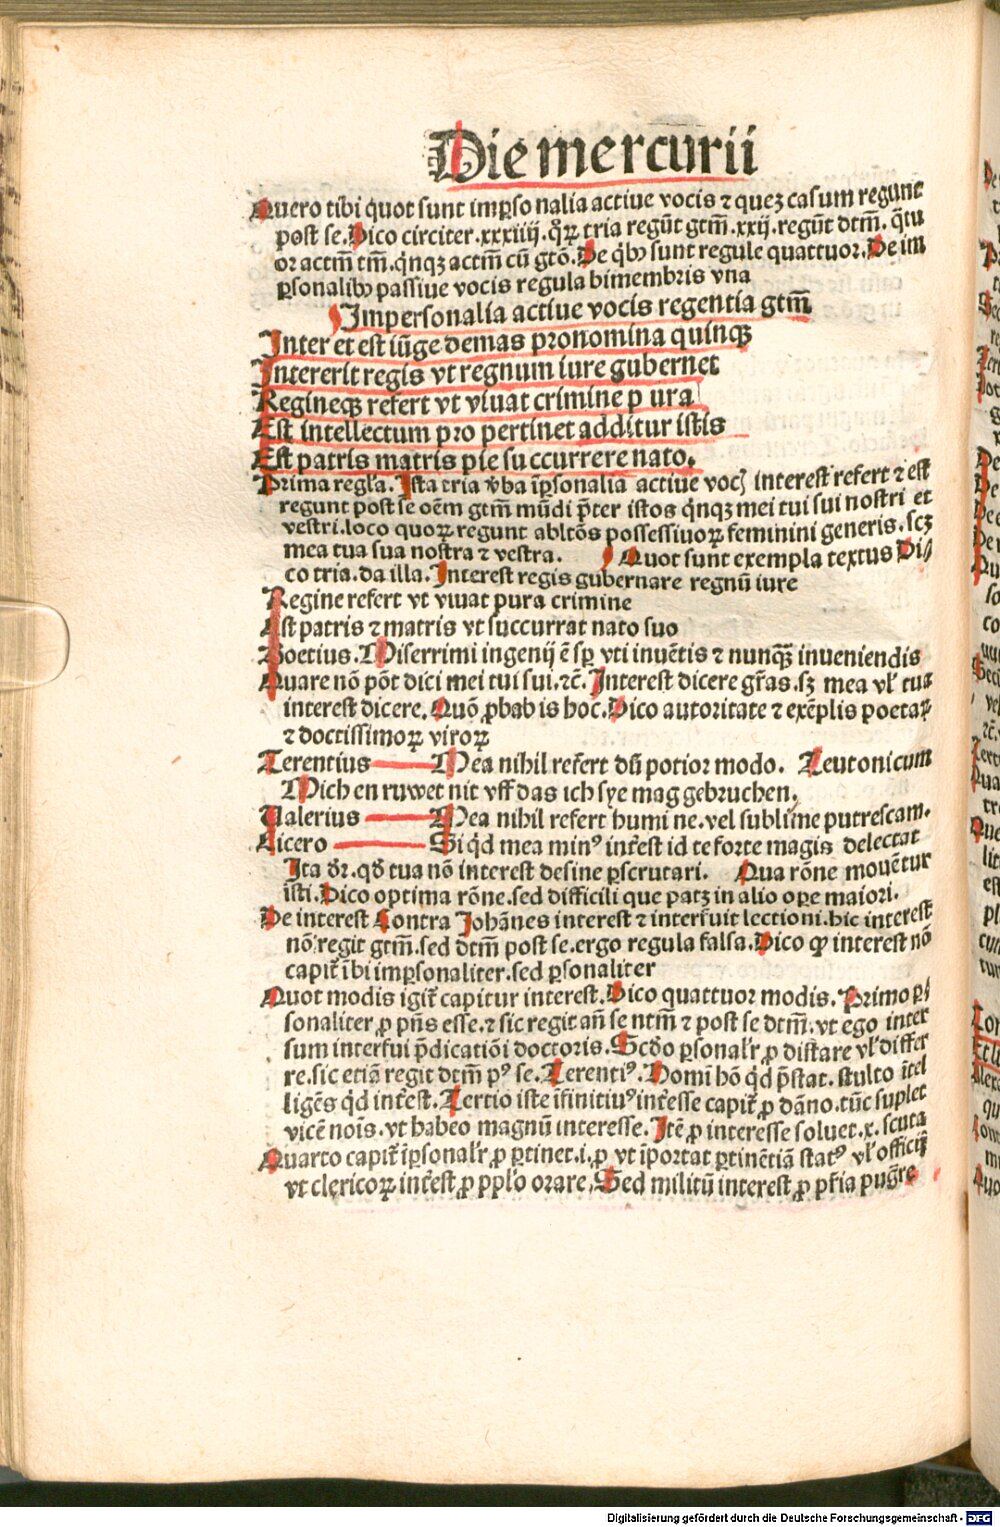 Die mercurii
Quero tibi quot sunt imꝑso nalia actiue vocis ⁊ queꝫ casum regunt
post se. Dico circiter .xxxiiij. q̊ꝝ tria regūt gtm̄ .xxij. regūt dtm̄. q̄tu
or actm̄ tm̄. qn̄qꝫ actm̄ cū gtō. De qͥbꝰ sunt regule quattuor. De im
ꝑsonalibꝰ passiue vocis regula bimembris vna
Impersonalia actiue vocis regentia gtm̄
Inter et est iūge demas pronomina quinqꝫ
Intererit regis vt regnum iure gubernet
Regineqꝫ refert vt viuat crimine p ura
Est intellectum pro pertinet additur istis
Est patris matris pie su ccurrere nato.
Prima regl'a. Ista tria v̄ba īꝑsonalia actiue vocꝭ interest refert ⁊ est
regunt post se oēm gtm̄ mūdi p̄ter istos qn̄qꝫ mei tui sui nostri et
vestri. loco quoꝝ regunt abltōs possessiuoꝝ feminini generis. scꝫ
mea tua sua nostra ⁊ vestra. Quot sunt exempla textus Di
co tria. da illa. Interest regis gubernare regnū iure
Regine refert vt viuat pura crimine
Est patris ⁊ matris vt succurrat nato suo
Boetius. Miserrimi ingenij ē sꝑ vti inuētis ⁊ nunqꝫ̄ inueniendis
Quare nō pōt dici mei tui sui. ⁊c̄. Interest dicere gr̄as. sꝫ mea vl' tua
interest dicere. Quō ꝓbab is hoc. Dico autoritate ⁊ exēplis poetaꝝ
⁊ doctissimoꝝ viroꝝ
Terentius Mea nihil refert dū potior modo. Teutonicum
Mich en ruwet nit vff das ich sye mag gebruchen.
Valerius Mea nihil refert humi ne. vel sublime putrescam.
Cicero Si qͥd mea minꝰ int̄est id te forte magis delectat
Ita d̄r. qd̄ tua nō interest desine ꝑscrutari. Qua rōne mouētur
isti. Dico optima rōne. sed difficili que patꝫ in alio oꝑe maiori.
De interest Contra Johānes interest ⁊ interfuit lectioni. hic interest
nō regit gtm̄. sed dtm̄ post se. ergo regula falsa. Dico ꝙ interest nō
capit̄ ibi imꝑsonaliter. sed ꝑsonaliter
Quot modis igit̄ capitur interest. Dico quattuor modis. Primo ꝑ
sonaliter ꝓ pn̄s esse. ⁊ sic regit an̄ se ntm̄ ⁊ post se dtm̄. vt ego inter
sum interfui p̄dicatiōi doctoris. Scd̄o ꝑsonal'r ꝓ distare vl' differ
re. sic etiā regit dtm̄ pꝰ se. Terentiꝰ. Domī hō qͥd p̄stat. stulto ītel
ligēs qͥd int̄est. Tertio iste īfinitiuꝰ int̄esse capit̄ ꝓ dāno. tūc suplet
vicē noīs. vt habeo magnū interesse. Itē ꝓ interesse soluet .x. scuta
Quarto capit̄ īꝑsonal'r ꝓ ꝑtinet .i. ꝓ vt īportat ꝑtinētiā statꝰ vl' officij
vt clericoꝝ int̄est ꝓ ppl'o orare. Sed militū interest ꝓ pr̄ia puḡre
Digitalisierung gefördert durch die Deutsche Forschungsgemeinschaft - DFG